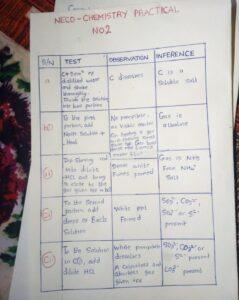 NECO-CHEMISTRY PRACTICAL
NO2
S/N TEST OBSERVATION INFERENCE
a C+5cm³ of distilled water and shake thoroughly. Divide the solution into two portions
C dissolves
C is a soluble salt
bi) To the first portion, add NaOH solution + Heat
No precipitate, no visible reaction
Gas is alkaline
ii) Dip stirring rod into dilute HCl and bring it close to the gas given off
Dense white fumes formed
Gas is NH3 from NH4+ salt
ci) To the second portion add drops of BaCl2 solution
White ppt formed
SO3²⁻, CO3²⁻, SO4²⁻ or S²⁻ present
cii) To the solution in c(i), add dilute HCl
White precipitate dissolves
A colourless and odourless gas given off
SO3²⁻, CO3²⁻ or S²⁻ present
CO3²⁻ present